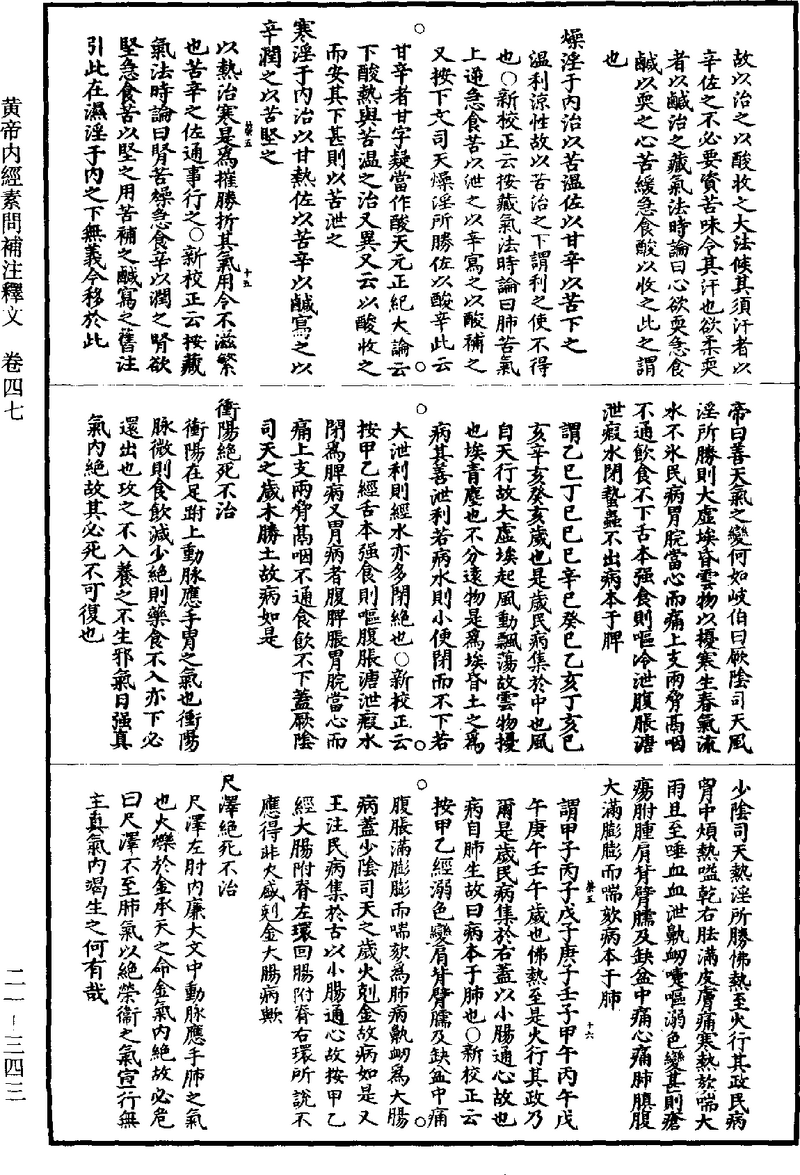 故以治之以酸收之大法候其須汗者以
辛佐之不必要資苦味令其汗也欲柔耎
者以鹹治之藏氣法時論曰心欲耎急食
鹹以耎之心苦緩急食酸以收之此之謂
也
燥淫于內治以苦溫佐以甘辛以苦下之
溫利涼性故以苦治之下謂利之使不得
也○新校正云按藏氣法時論曰肺苦氣
上逆急食苦以泄之以辛寫之以酸補之
又按下文司天燥淫所勝佐以酸辛此云
甘辛者甘字疑當作酸天元正紀大論云
下酸熱與苦溫之治又異又云以酸收之
而安其下甚則以苦泄之
寒淫于內治以甘熱佐以苦辛以鹹寫之以
辛潤之以苦堅之
以熱治寒是爲摧勝折其氣用令不滋繁
也苦辛之佐通事行之○新校正云按藏
氣法時論曰腎苦燥急食辛以潤之腎欲
堅急食苦以堅之用苦補之鹹寫之舊注
引此在濕淫于內之下無義今移於此
帝曰善天氣之變何如岐伯曰厥陰司天風
淫所勝則大虛埃昏雲物以擾寒生春氣流
水不氷民病胃脘當心而痛上支兩脅鬲咽
不通飲食不下舌本强食則嘔冷泄腹脹溏
泄瘕水閉蟄蟲不出病本于脾
謂乙巳丁巳己巳辛巳癸巳乙亥丁亥己
亥辛亥癸亥歲也是歲民病集於中也風
自天行故大虛埃起風動飄蕩故雲物擾
也埃青塵也不分遠物是爲埃昏土之爲
病其善泄利若病水則小便閉而不下若
大泄利則經水亦多閉絶也○新校正云
按甲乙經舌本强食則嘔腹脹溏泄瘕水
閉爲脾病又胃病者腹脾脹胃脘當心而
痛上支兩脅鬲咽不通食飲不下蓋厥陰
司天之歲木勝土故病如是
衝陽絶死不治
衝陽在足跗上動脉應手胃之氣也衝陽
脉微則食飲減少絶則藥食不入亦下必
還出也攻之不入養之不生邪氣日强真
氣內絶故其必死不可復也
少陰司天熱淫所勝怫熱至火行其政民病
胷中煩熱嗌乾右胠滿皮膚痛寒熱欬喘大
雨且至唾血血泄鼽衂嚏嘔溺色變甚則瘡
瘍胕腫肩背臂臑及缺盆中痛心痛肺䐜腹
大滿膨膨而喘欬病本于肺
謂甲子丙子戊子庚子壬子甲午丙午戊
午庚午壬午歲也怫熱至是火行其政乃
爾是歲民病集於右蓋以小腸通心故也
病自肺生故曰病本于肺也○新校正云
按甲乙經溺色變肩背臂臑及缺盆中痛
腹脹滿膨膨而喘欬爲肺病鼽衂爲大腸
病蓋少陰司天之歲火剋金故病如是又
王注民病集於右以小腸通心故按甲乙
經大腸附脊左環回腸附脊右環所說不
應得非火盛剋金大腸病歟
尺澤絶死不治
尺澤左肘內廉大文中動脉應手肺之氣
也火爍於金承天之命金氣內絶故必危
曰尺澤不至肺氣以絶榮衛之氣宣行無
主真氣內竭生之何有哉
黄帝内經素問補注釋文　卷四七
二一－三四三